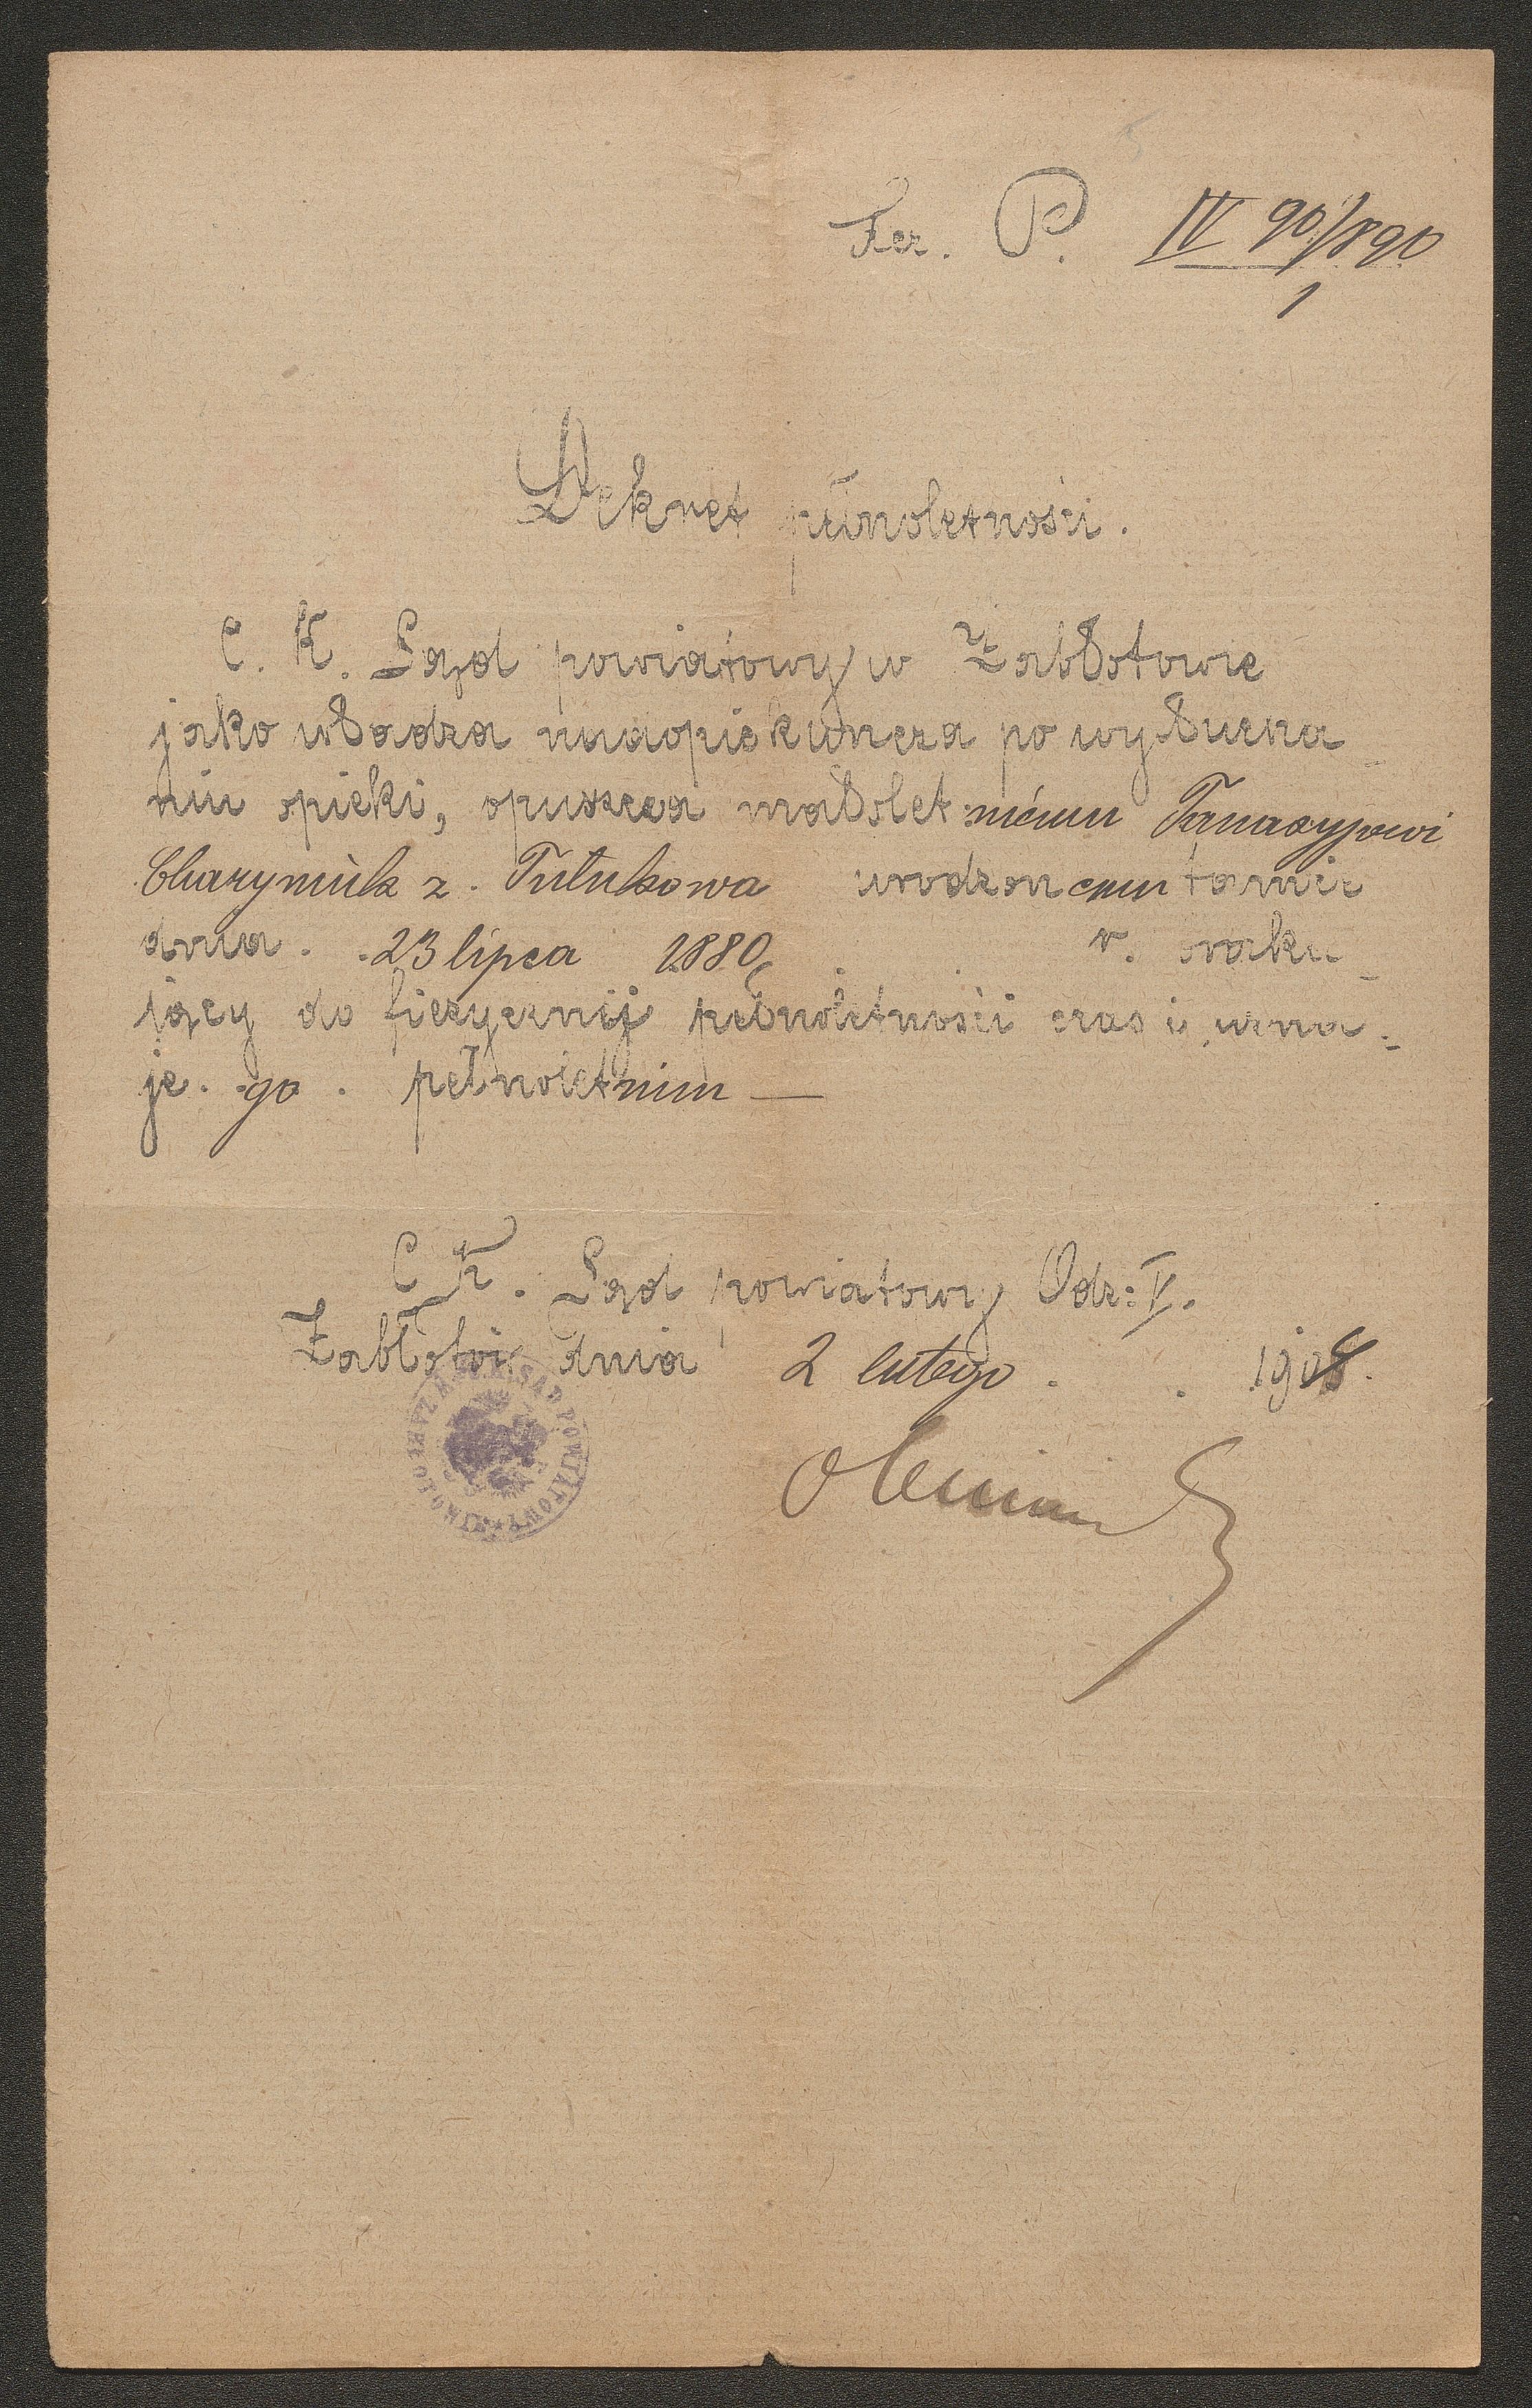 Fcz. P. IV 90/890
1
Dekret pełnoletności.
C. K. Sąd powiatowy w Zabłotowie
jako władza nadopiekuńcza po wysłucha_
niu opieki, opuszcza małoletniemu Tanasyjowi
z Tułukowa urodzonemu tamże
dnia 23 lipca 1880 r. braku_
jący do fizycznej pełnoletności czas i uzna_
je go pełnoletnim —
C. K. Sąd powiatowy Odz: V.
Zabłotów dnia 2 lutego 1908.
C.K. SĄD POWIATOWY